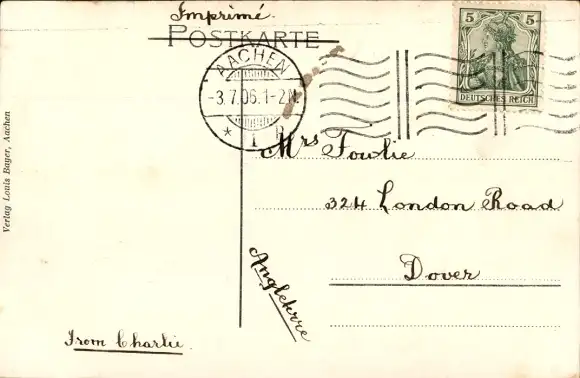 Imprimé
POSTKARTE
5 5
DEUTSCHES REICH
AACHEN
-3.7.06.1-2N.
* 1 h
Mrs Fowlie
324 London Road
Dover
Angleterre
From Charlie.
Verlag Louis Bager, Aachen